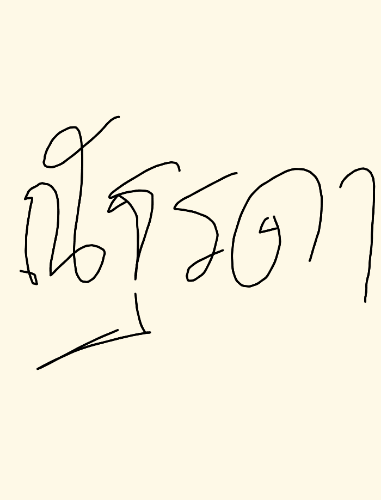 ณัฐรดา